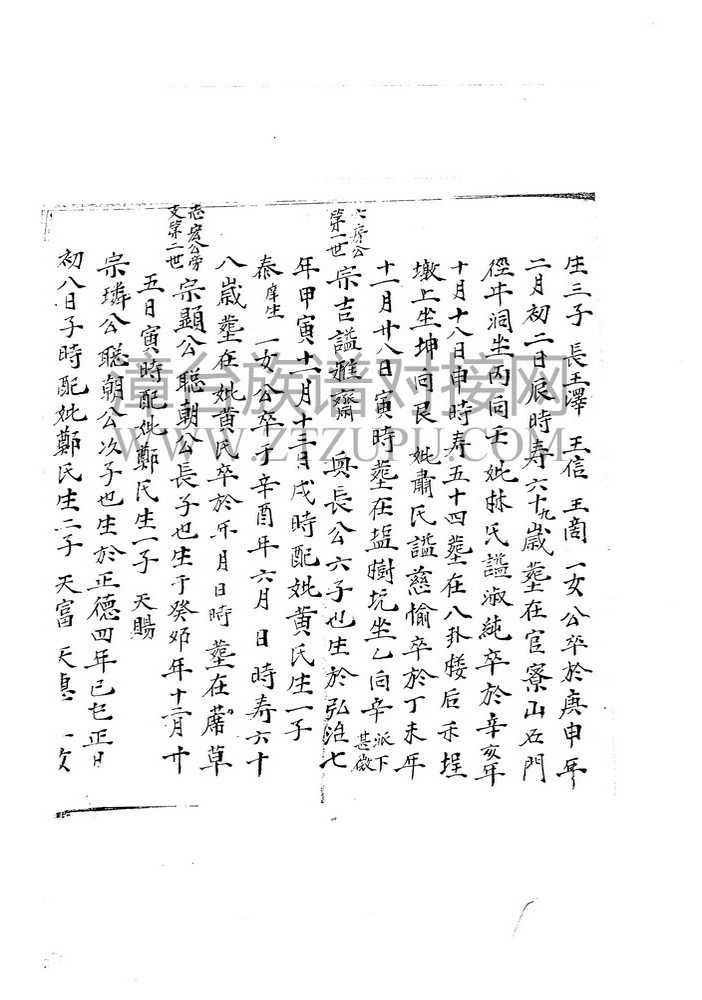 生三子 長玉澤 玉信 玉商 一女公卒於庚申年
二月初二日辰時寿六十九歲塟在官寮山石門
徑牛洞坐丙向壬妣林氏諡淑純卒於辛亥年
十月十八日申時寿五十四塟在八卦楼后禾埕
墩上坐坤向艮 妣肅氏諡慈愉卒於丁未年
十一月廿八日寅時塟在盐樹坑坐乙向辛 派下甚微
六房公第一世
宗吉諡雅齋 奥長公六子也生於弘治七
年甲寅十二月十二日戌時配妣黄氏生一子
泰 庠生 一女公卒于辛酉年六月 日時寿六十
八歲塟在妣黄氏卒於年月日時塟在蓆草
志宏公旁支第二世
宗顯公聪朝公長子也生于癸卯年十二月廿
五日寅時配妣鄭氏生一子 天賜
宗璘公聪朝公次子也生於正德四年己巳正月
初八日子時配妣鄭氏生二子 天富 天 一女
章台族谱对接网
WWW.ZTZUPU.COM